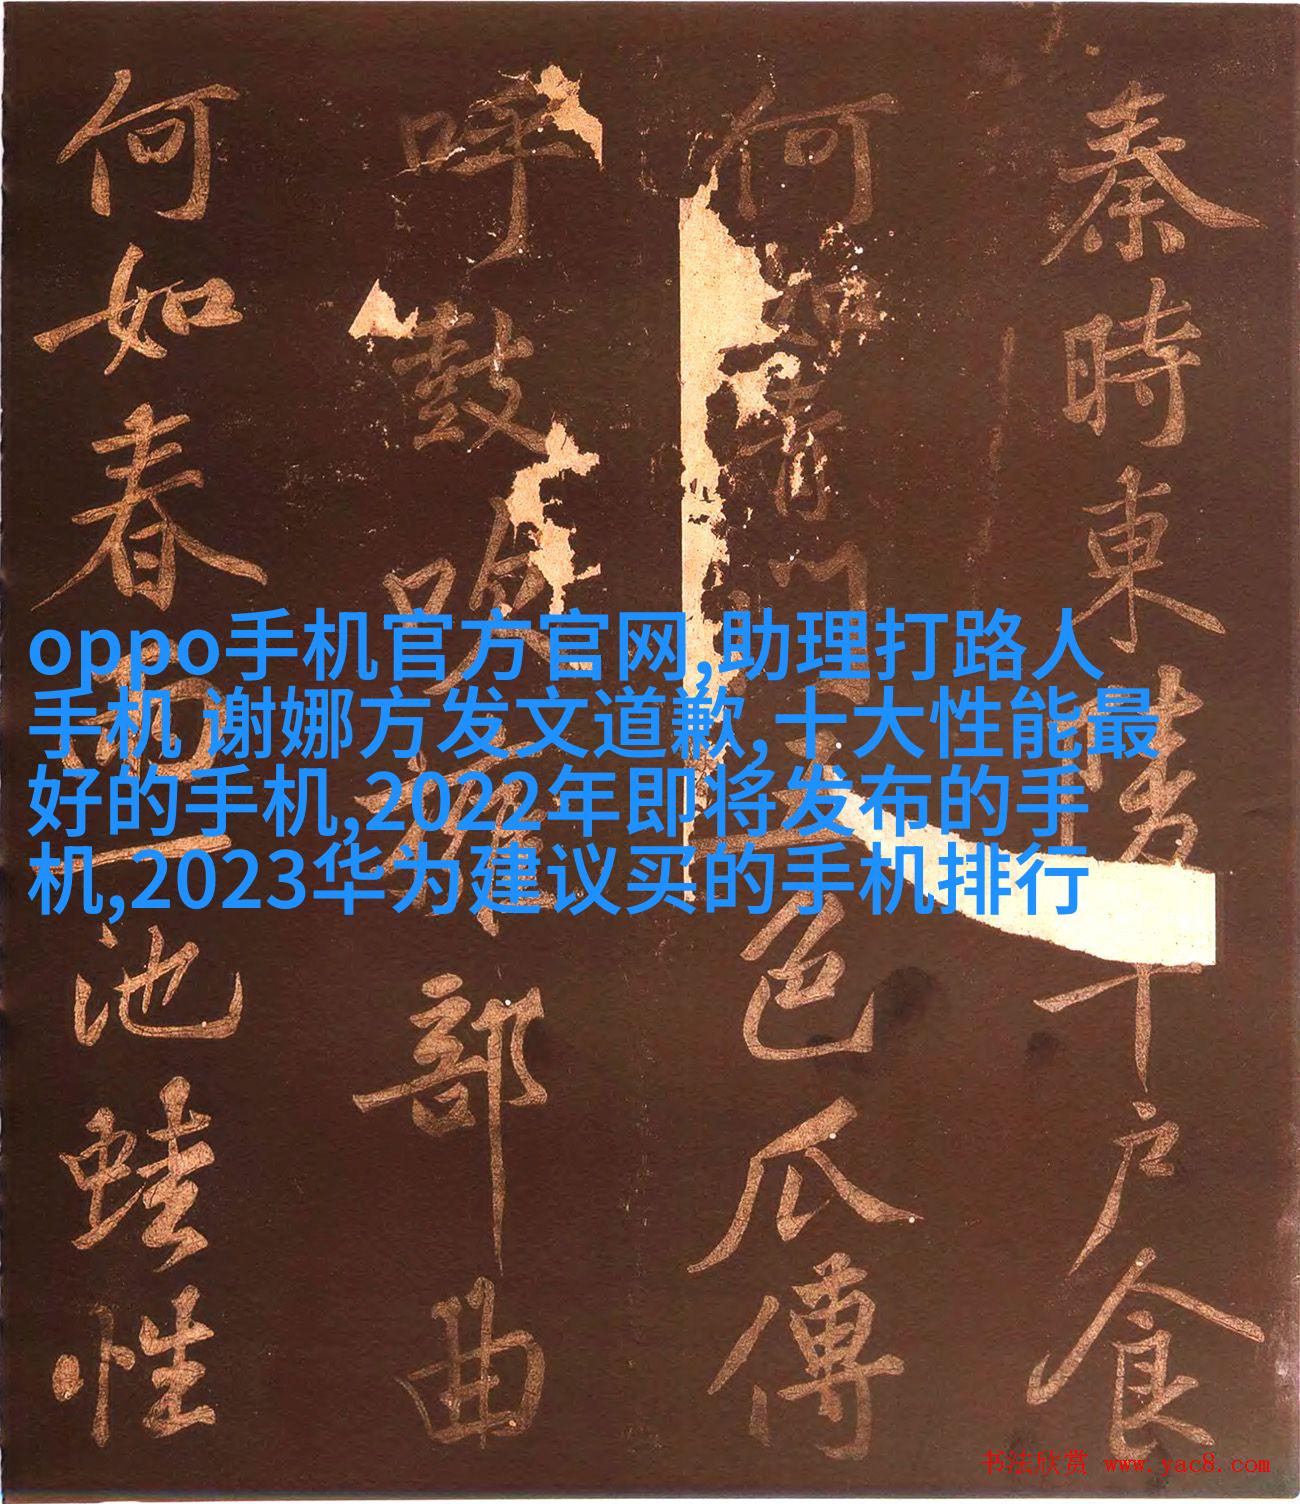 秦時東陵千戶食
何如青門五色瓜傳
呼鼓吹
部曲
何如春雨一池蛙性
oppo手机官方官网,助理打路人
手机 谢娜方发文道歉,十大性能最
好的手机,2022年即将发布的手
机,2023华为建议买的手机排行
书法欣赏 www.yac8.com